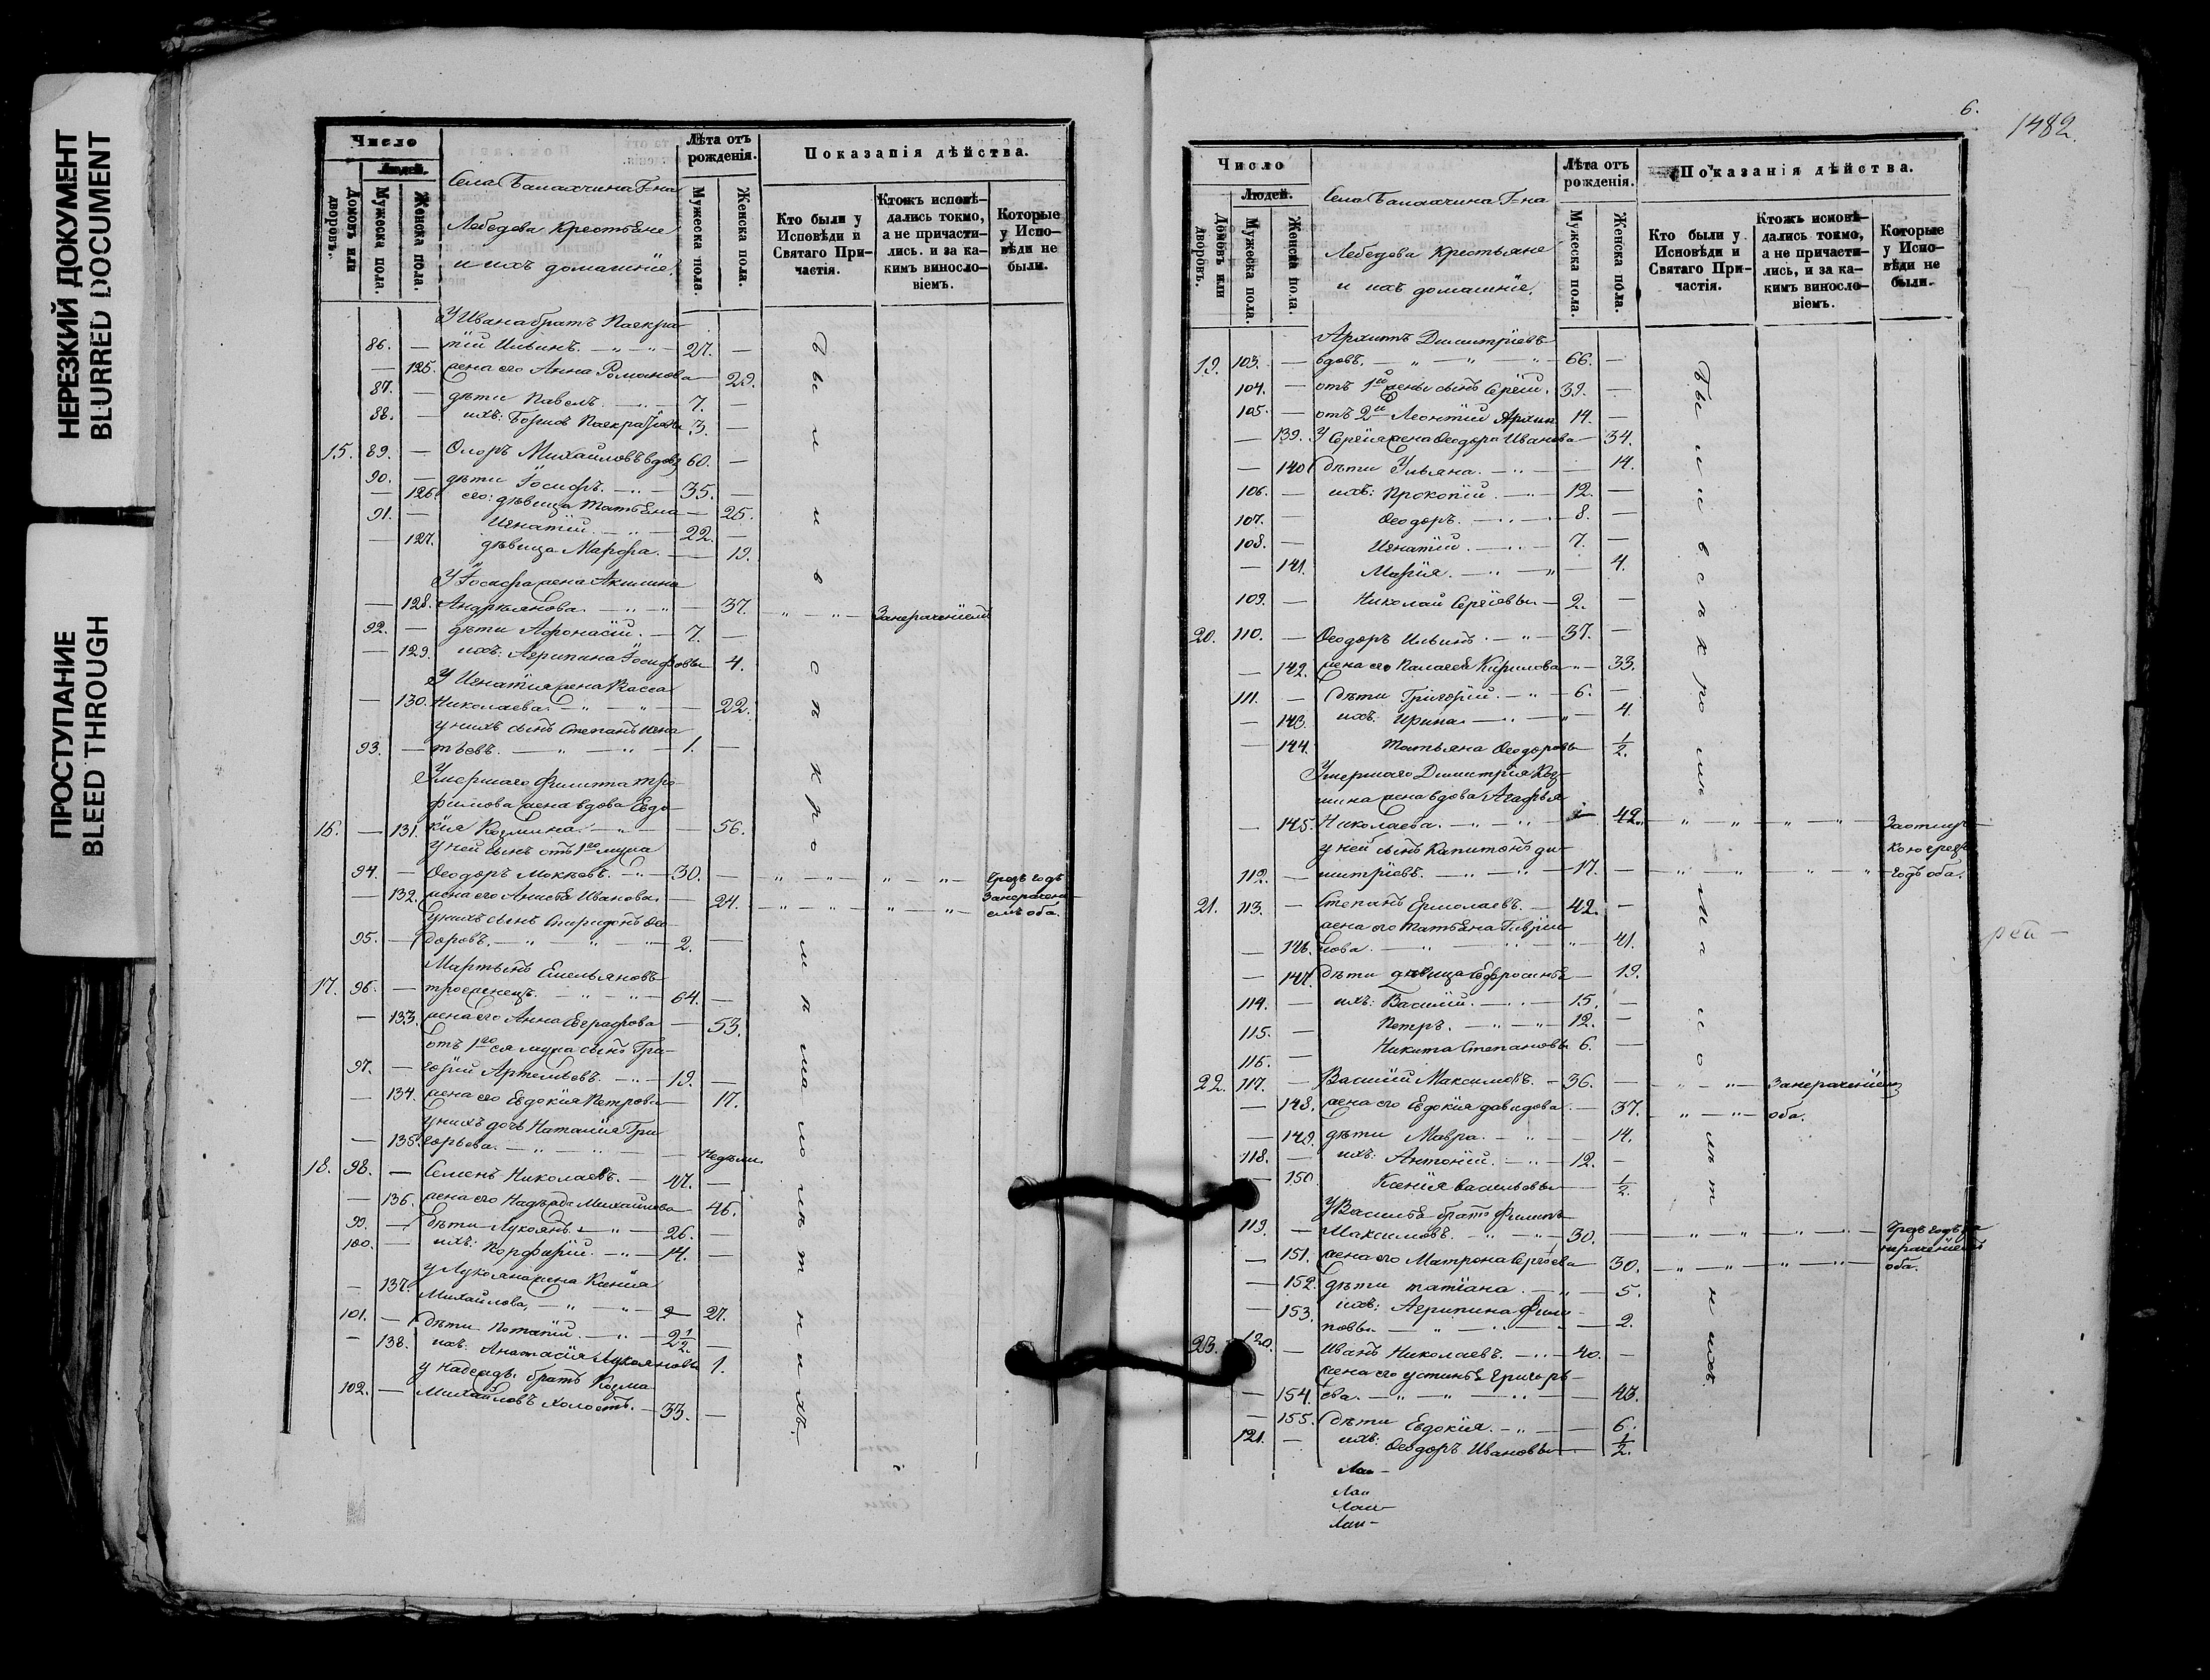 НЕРЕЗКИЙ ДОКУМЕНТ
BLURRED DOCUMENT
ПРОСТУПАНИЕ
BLEED THROUGH
Число
Людей.
Домовъ или дворовъ.
Мужеска пола.
Женска пола.
Села Балахчина Г-на
Лебедева крестьяне
и ихъ домашніе.
Лѣта отъ рожденія.
Мужеска пола.
Женска пола.
Показанія дѣйства.
Кто были у Исповѣди и Святаго Причастія.
Ктожъ исповѣ-
дались токмо,
а не причасти-
лись. и за ка-
кимъ винословіемъ.
Которые у Испо-
вѣди не были.
У Ивана братъ Панкра-
86. — тій Ильинъ. — 27. —
— 125. жена его Анна Романова — 29.
87. — дѣти Павелъ. — 7. —
88. — ихъ: Борисъ 3. —
15. 89. — Флоръ Михайловъ вдовъ 60. —
90. — дѣти Іосифъ. — 35. —
— 126. его: дѣвица Татьяна — 25.
91. — Игнатій — 22. —
— 127. дѣвица Марфа. — 19.
У Іосифа жена Акилина
— 128. Андреянова. — 37. Занераченіемъ
92. — дѣти Афонасій. — 7. —
— 129. ихъ: Агрипина Іосифовы 4.
У Игнатія жена Васса
— 130. Николаева. — 22.
у нихъ сынъ Степанъ Игна
93. — тьевъ. — 1. —
Умершаго Филипа Тро-
фимова жена вдова Евдо-
16. — 131. кія Козмина. — 56.
у ней сынъ отъ 1го мужа
94. — Феодоръ Мокѣевъ. — 30. — Чрезъ годъ
— 132. жена его Анисья Иванова. — 24. занерачені-
емъ оба.
у нихъ сынъ Спиридонъ Фео-
95. — доровъ. — 2. —
Мартынъ Емельяновъ
17. 96. — троеженецъ. — 64. —
— 133. жена его Анна Евграфова — 53.
отъ 1го ея мужа сынъ Гри-
97. — горій Артемьевъ. — 19. —
— 134. жена его Евдокія Петрова — 17.
у нихъ дочь Наталія Гри
— 135. горьева. — Недѣли.
18. 98. — Семенъ Николаевъ. — 47. —
— 136. жена его Надежда Михайлова 46.
99. — дѣти Лукоянъ. — 26. —
100. — ихъ: Порфирій. — 14. —
у Лукояна жена Ксенія
— 137. Михайлова, — 27.
101. — дѣти Потапій. — 2 1/2 —
— 138. ихъ: Анатасія Лукояновы 1.
у Надежды братъ Козма
102. — Михайловъ холостъ. — 33. —
Были и въ скпкро ма ло лѣт нихъ.
6.
1482
Число
Людей.
Домовъ или дворовъ.
Мужеска пола.
Женска пола.
Села Балахчина Г-на
Лебедева крестьяне
и ихъ домашніе.
Лѣта отъ рожденія.
Мужеска пола.
Женска пола.
Показанія дѣйства.
Кто были у Исповѣди и Святаго Причастія.
Ктожъ исповѣ-
дались токмо,
а не причасти-
лись, и за ка-
кимъ винословіемъ.
Которые у Испо-
вѣди не были.
Архипъ Димитріевъ
19. 103. — вдовъ. — 66. —
104. — отъ 1й жены сынъ Сергій. 39. —
105. — отъ 2й Леонтій Архип 14. —
— 139. У Сергія жена Феодора Иванова — 34.
— 140. дѣти Ульяна. — 14.
106. — ихъ: Прокопій. — 12. —
107. — Феодоръ. — 8. —
108. — Игнатій. — 7. —
— 141. Марія. — 4.
109. — Николай Сергіевы — 2. —
20. 110. — Феодоръ Ильинъ. — 37. —
— 142. жена его Палагея Кирилова — 33.
111. — дѣти Григорій. — 6. —
— 143. ихъ: Ирина. — 4.
— 144. Татьяна Феодоровы — 1/2.
Умершаго Димитрія Коз-
мина жена вдова Агафья
— 145. Николаева. — 42. Заотлуч-
у ней сынъ Капитонъ Ди- кою чрезъ
112. — митріевъ. — 17. — годъ оба.
21. 113. — Степанъ Ермолаевъ. — 42. —
жена его Татьяна Гаврии-
— 146. лова. — 41.
— 147. дѣти дѣвица Ефросинья — 19.
114. — ихъ: Василій. — 15. —
115. — Петръ. — 12. —
116. — Никита Степановы 6. —
22. 117. — Василій Максимовъ. — 36. — Занераченіемъ
— 148. жена его Евдокія Давидова. — 37. оба.
— 149. дѣти Мавра. — 14.
118. — ихъ: Антоній. — 12. —
— 150. Ксенія Васильевы — 1/2.
У Василья братъ Филипъ
119. — Максимовъ. — 30. — Чрезъ годъ за
— 151. жена его Матрона Сергѣева — 30. нераченіемъ
оба.
— 152. дѣти Татіана. — 5.
— 153. ихъ: Агрипина Фили-
повы — 2.
23. 120. — Иванъ Николаевъ. — 40. —
жена его Устинья Григорь-
— 154. ева. — 43.
— 155. дѣти Евдокія. — 6.
121. — ихъ: Феодоръ Ивановы — 1/2.